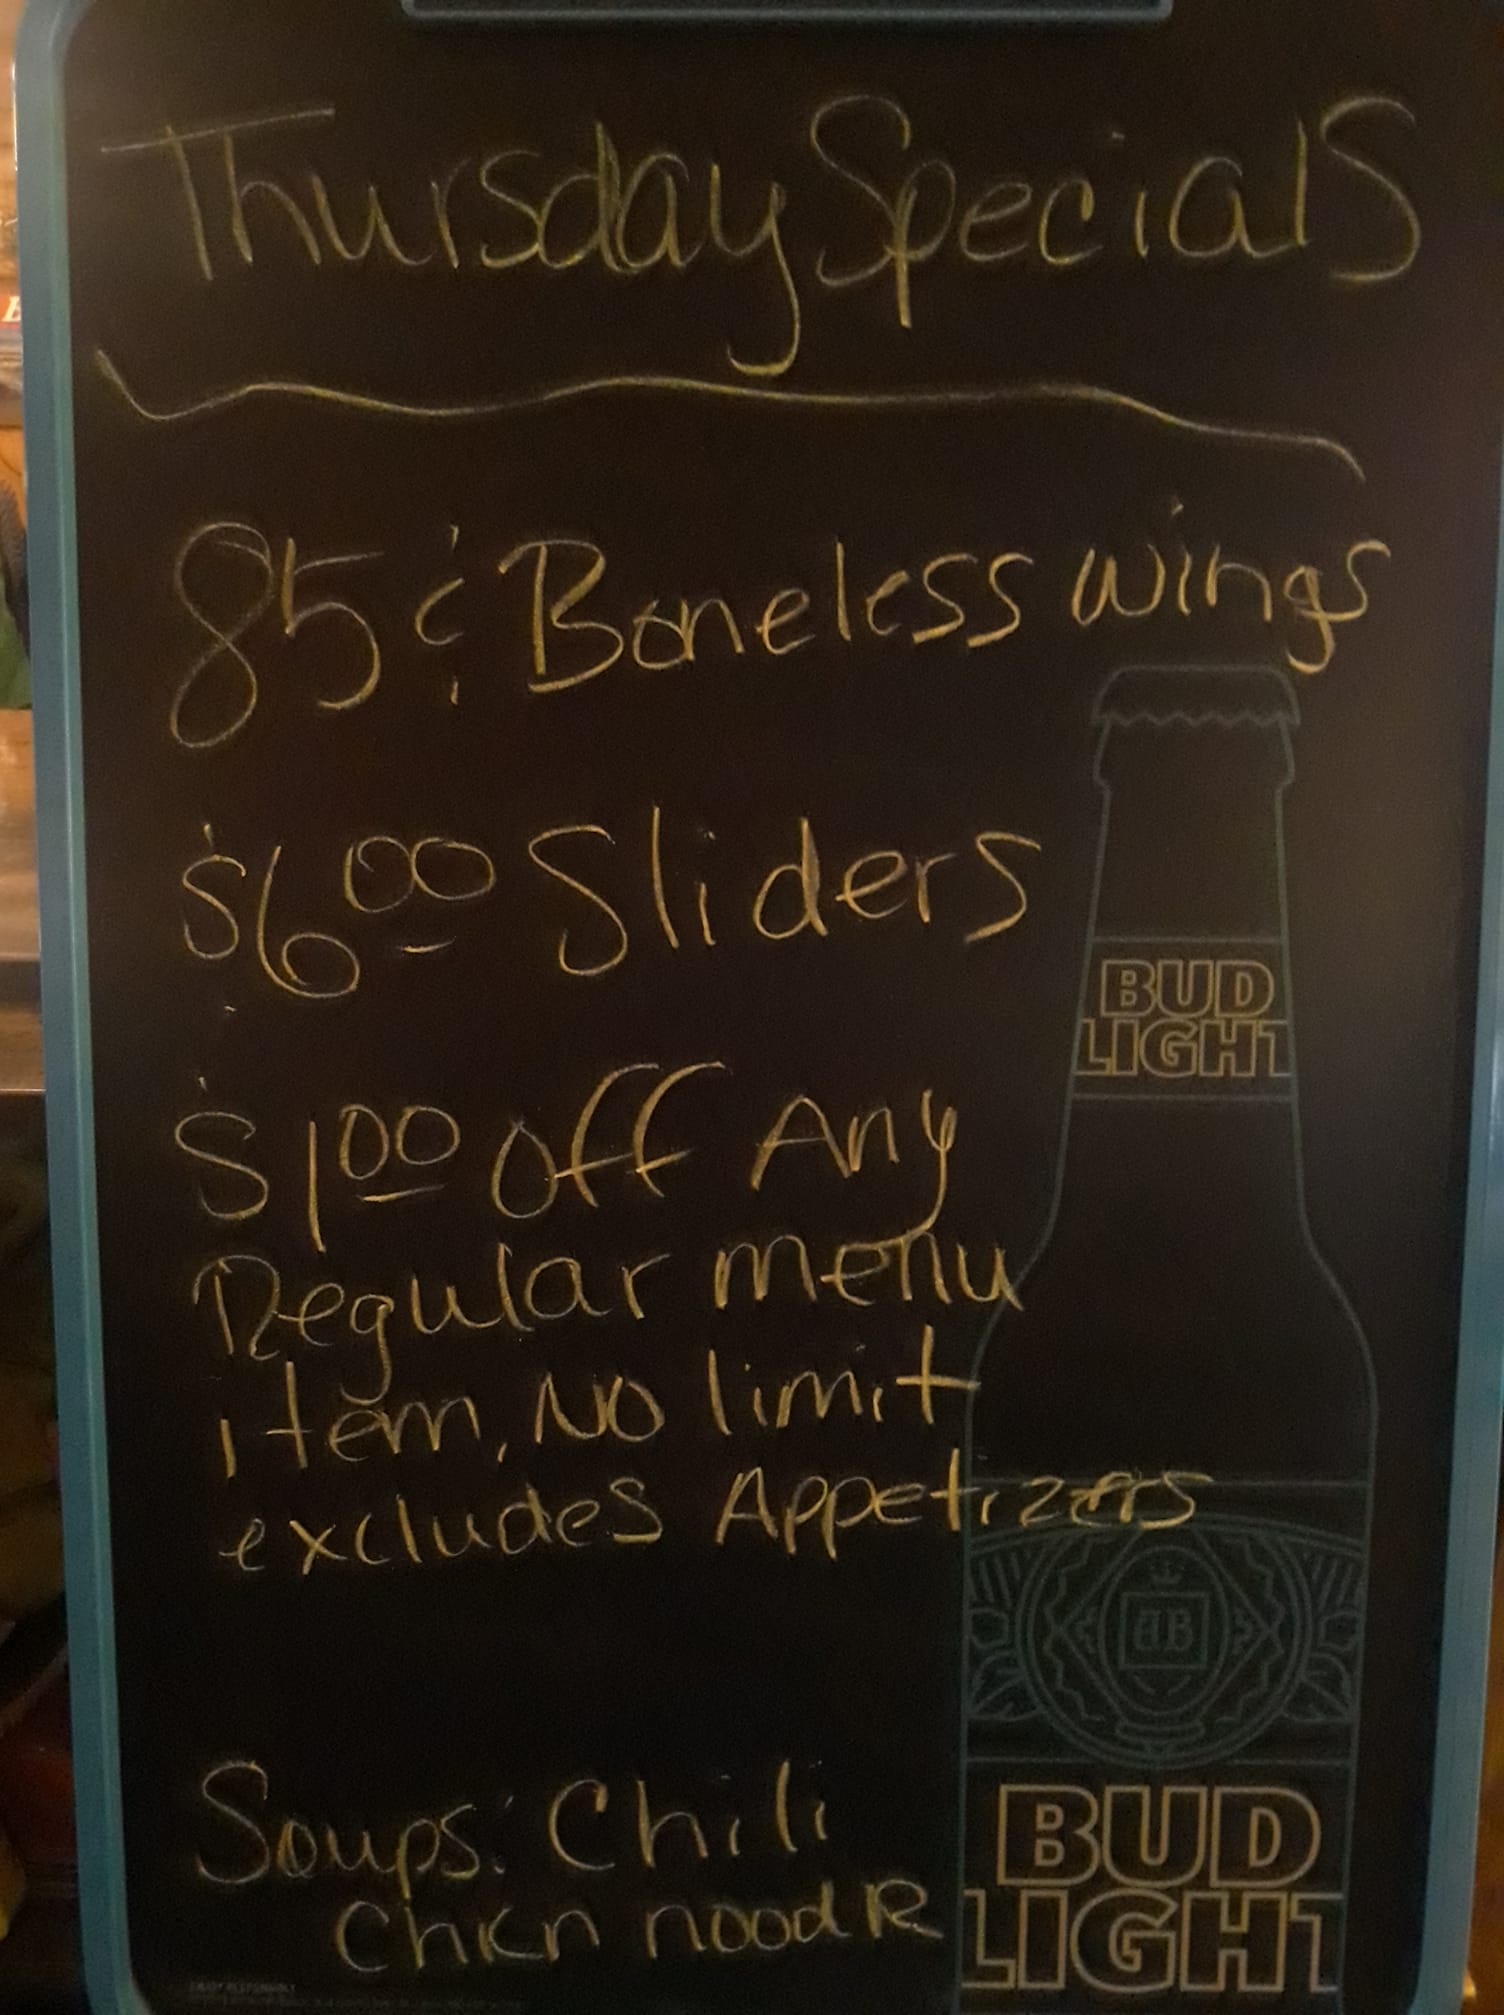 Thursday Specials
85¢ Boneless wings
$6.00 Sliders
BUD
LIGHT
$1.00 off Any
Regular menu
item, NO limit
excludes Appetizers
AB
Soups: Chili
Chkn noodle
BUD
LIGHT
ENJOY RESPONSIBLY